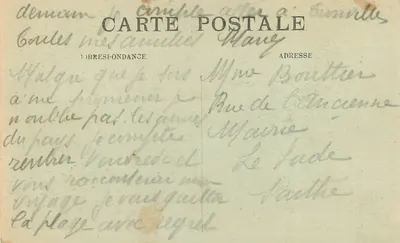 demain je compte aller à Trouville
Toutes mes amitiés Marcy
CARTE POSTALE
CORRESPONDANCE
ADRESSE
Malgré que je sois
à me promener je
n'oublie pas les amies
du pays je compte
rentrer Vendredi
vous racconterai mon
voyage je vais quitter
la plage avec regret
Mme Bouttier
Rue de l'Ancienne
Mairie
Le Lude
Sarthe